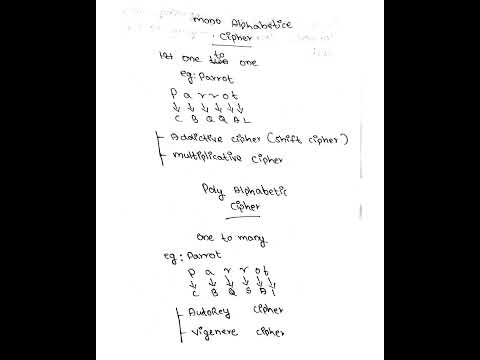 Mono Alphabetice
Cipher
one to one
eg: Parrot
P a r r o t
C B Q Q A L
Addictive cipher (shift cipher)
multiplicative cipher
Poly Alphabetic
Cipher
one to many.
eg: Parrot
P a r r o t
C B Q S A I
AutoKey cipher
Vigenere cipher